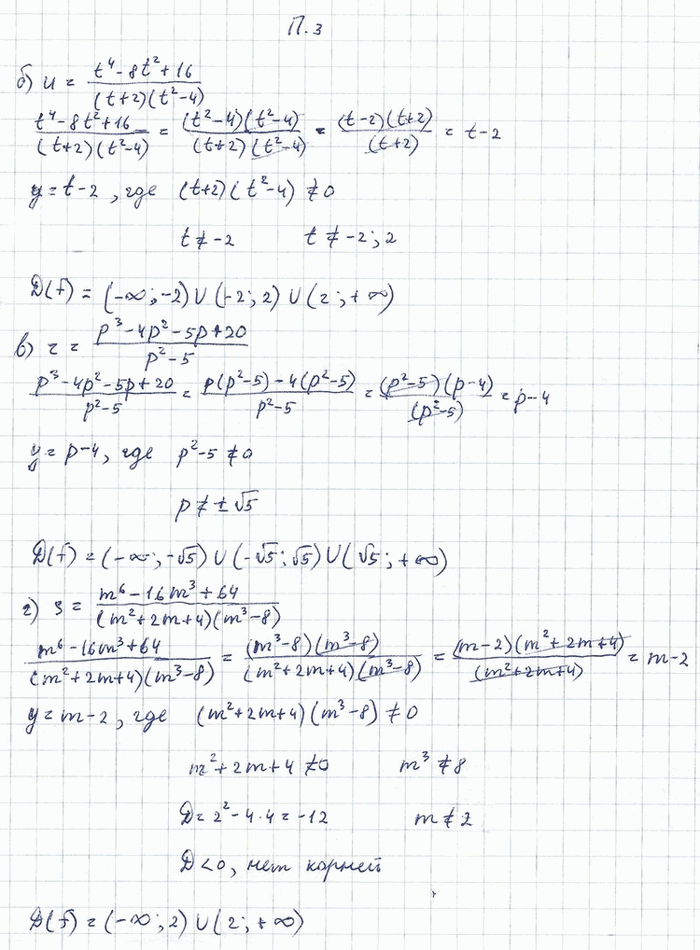 П. 3
б) u = (t⁴ - 8t² + 16) / ((t+2)(t²-4))
(t⁴ - 8t² + 16) / ((t+2)(t²-4)) = ((t²-4)(t²-4)) / ((t+2)(t²-4)) = ((t-2)(t+2)) / (t+2) = t-2
y = t-2, где (t+2)(t²-4) ≠ 0
t ≠ -2 t ≠ -2; 2
D(f) = (-∞; -2) ∪ (-2; 2) ∪ (2; +∞)
в) z = (p³ - 4p² - 5p + 20) / (p² - 5)
(p³ - 4p² - 5p + 20) / (p² - 5) = (p(p²-5) - 4(p²-5)) / (p² - 5) = ((p²-5)(p-4)) / (p²-5) = p-4
y = p-4, где p²-5 ≠ 0
p ≠ ±√5
D(f) = (-∞; -√5) ∪ (-√5; √5) ∪ (√5; +∞)
г) s = (m⁶ - 16m³ + 64) / ((m²+2m+4)(m³-8))
(m⁶ - 16m³ + 64) / ((m²+2m+4)(m³-8)) = ((m³-8)(m³-8)) / ((m²+2m+4)(m³-8)) = ((m-2)(m²+2m+4)) / (m²+2m+4) = m-2
y = m-2, где (m²+2m+4)(m³-8) ≠ 0
m²+2m+4 ≠ 0 m³ ≠ 8
D = 2² - 4·4 = -12 m ≠ 2
D < 0, нет корней
D(f) = (-∞; 2) ∪ (2; +∞)